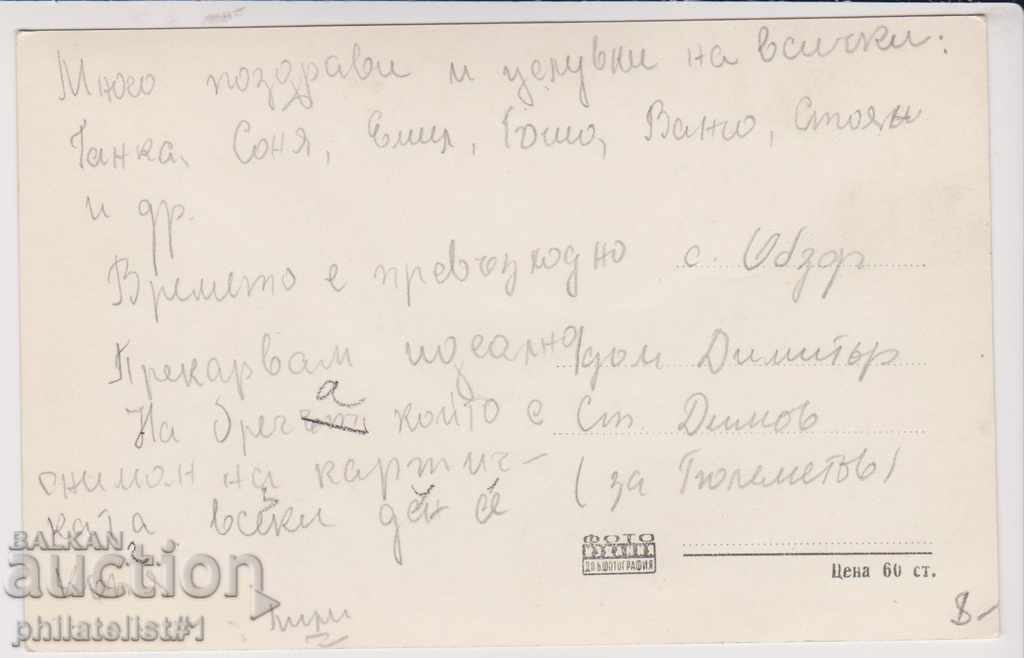 Много поздрави и целувки на всички:
Танка, Соня, Емил, Гошо, Ванчо, Стоян
и др.
Времето е превъзходно
Прекарвам идеално
На брега който е
сниман на картич-
ката всеки ден е
с. Обзор
дом Димитър
Ст. Димов
(за Големетов)
ФОТО
ИЗДАНИЕ
ДП БЪЛГ. ФОТОГРАФИЯ
Цена 60 ст.
8-
BALKAN
auction
philatelist#1